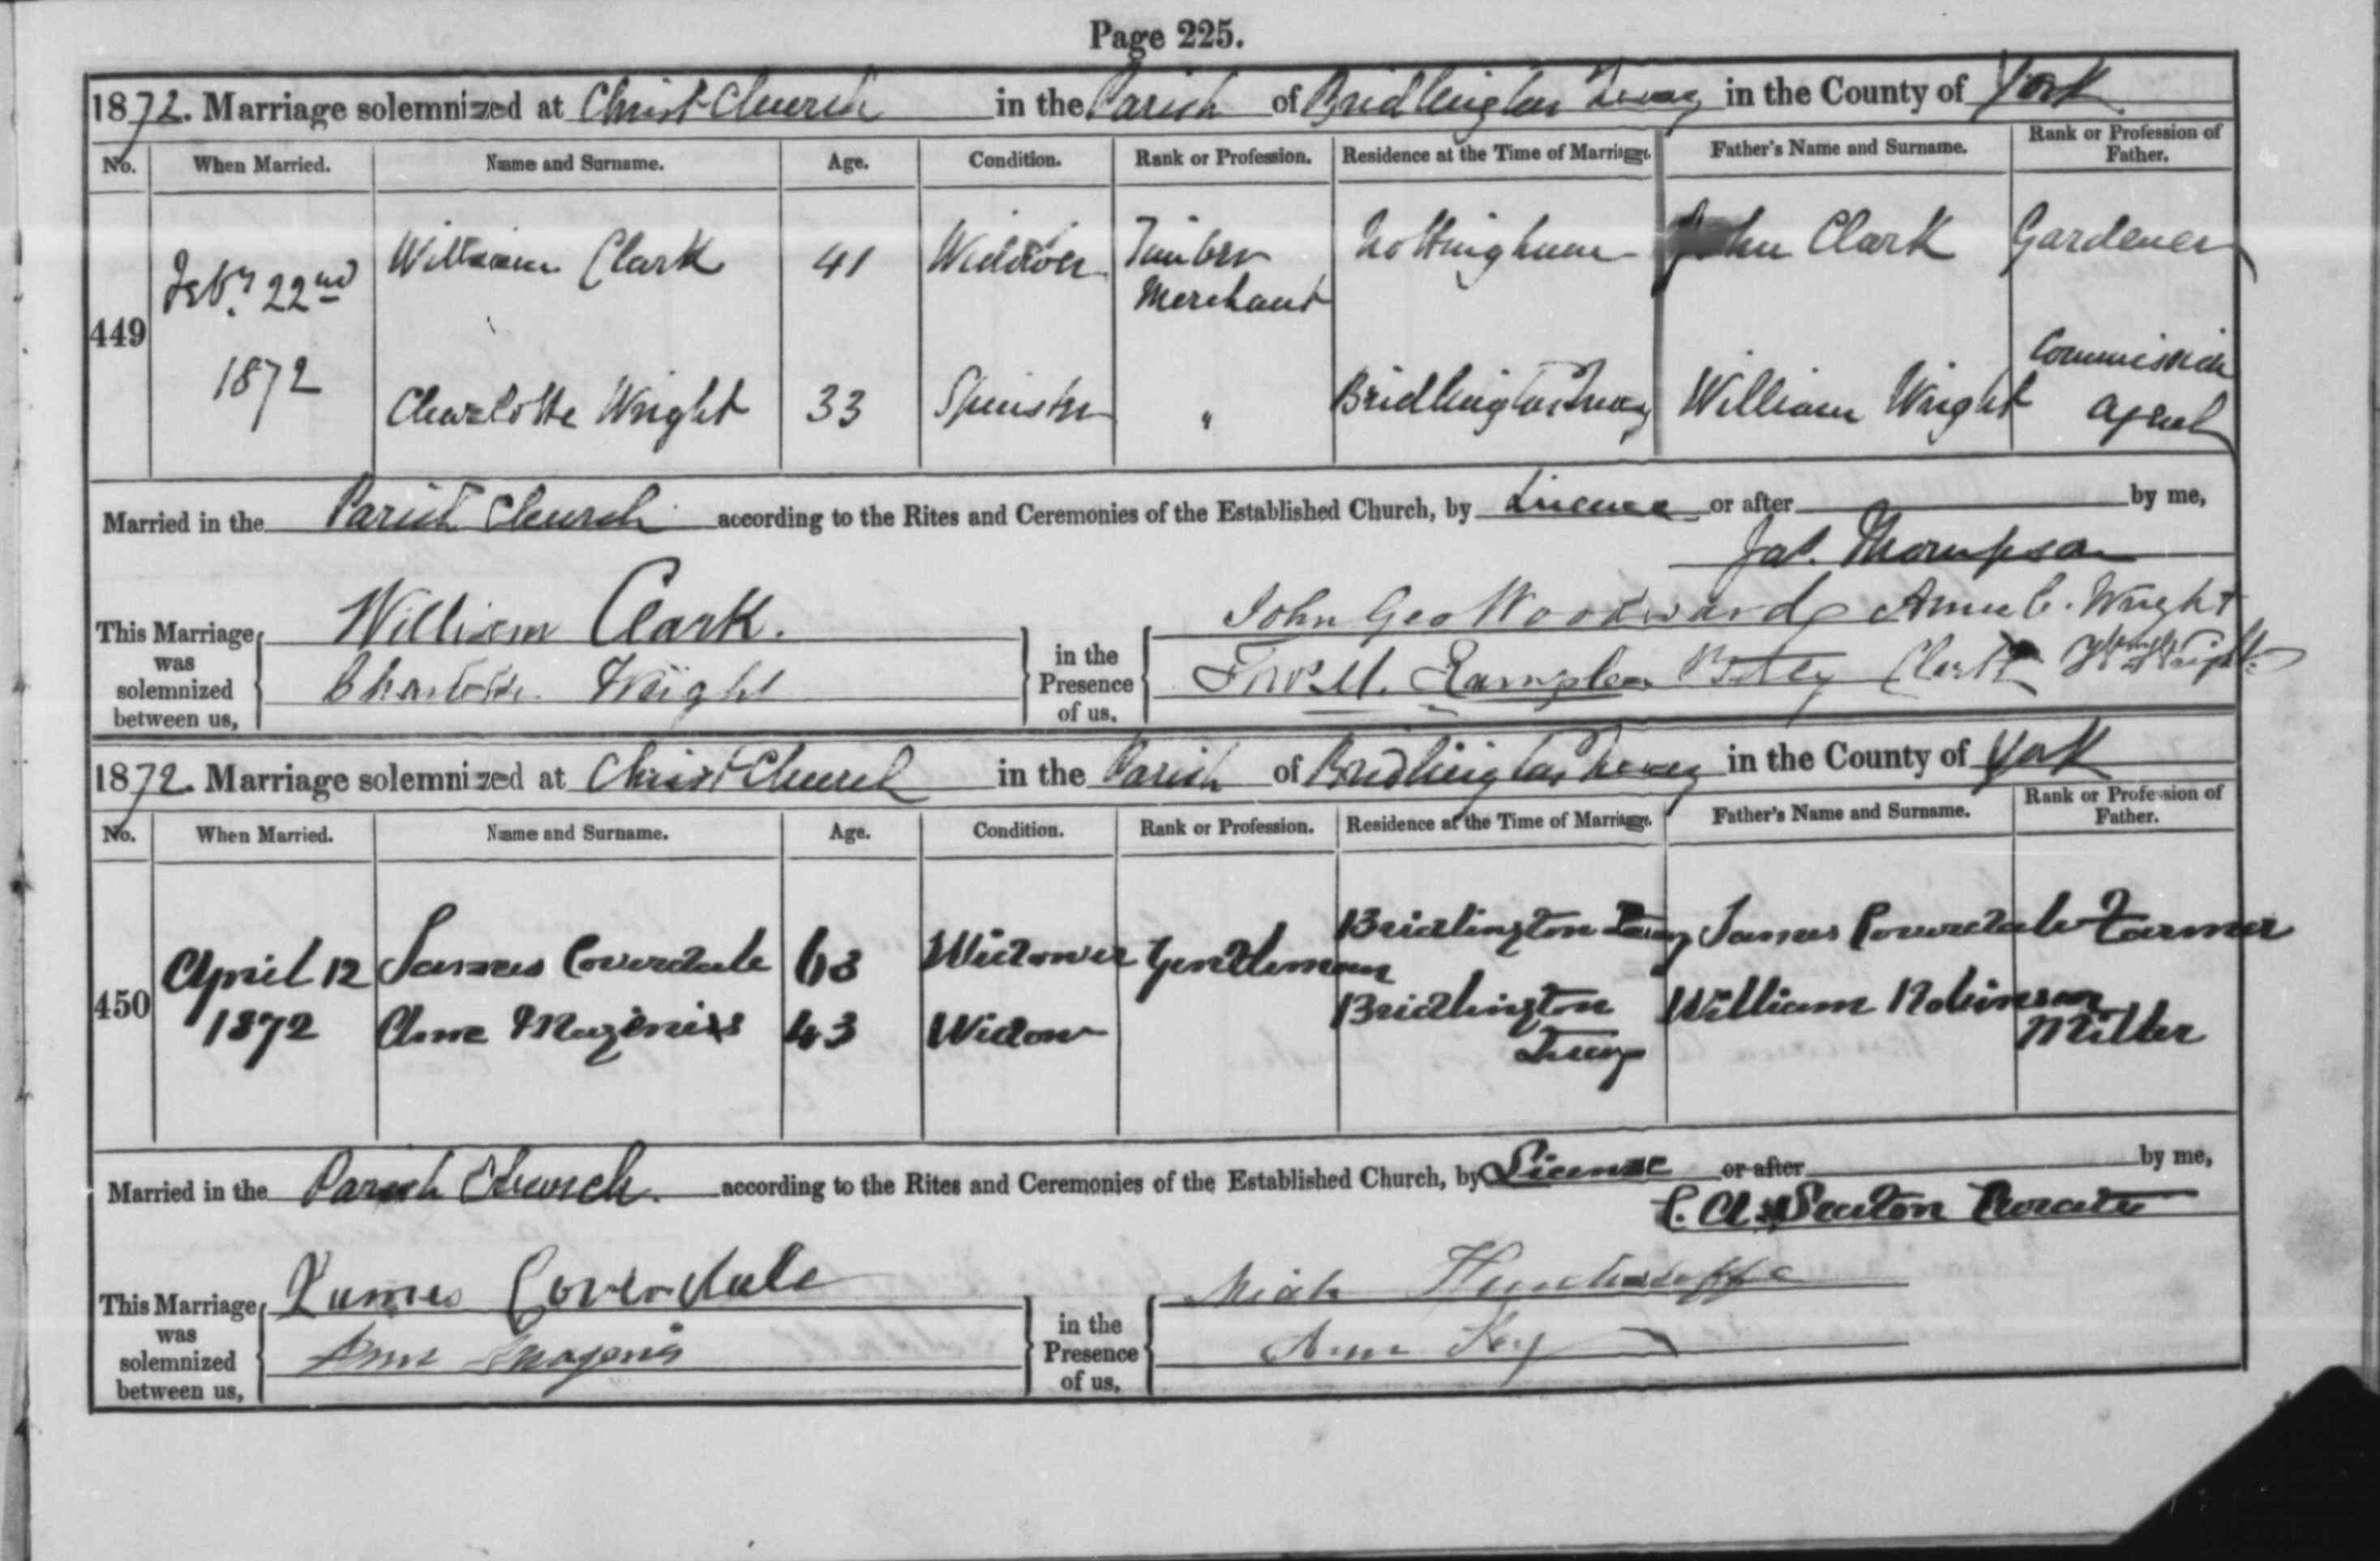 Page 225.
1872. Marriage solemnized at Christ Church in the Parish of Bridlington Quay in the County of York
No. When Married. Name and Surname. Age. Condition. Rank or Profession. Residence at the Time of Marriage. Father's Name and Surname. Rank or Profession of Father.
449 Feby 22nd 1872 William Clark 41 Widower Timber Merchant Nottingham John Clark Gardener
Charlotte Wright 33 Spinster " Bridlington Quay William Wright Commission Agent
Married in the Parish Church according to the Rites and Ceremonies of the Established Church, by Licence or after by me,
Jas. Thompson
This Marriage was solemnized between us, William Clark. Charlotte Wright
in the Presence of us, John Geo Woodward Annie C. Wright
Betsy Clark
1872. Marriage solemnized at Christ Church in the Parish of Bridlington Quay in the County of York
No. When Married. Name and Surname. Age. Condition. Rank or Profession. Residence at the Time of Marriage. Father's Name and Surname. Rank or Profession of Father.
450 April 12 1872 James Coverdale 63 Widower Gentleman Bridlington Quay James Coverdale Farmer
Anne Maginiss 43 Widow Bridlington Quay William Robinson Miller
Married in the Parish Church. according to the Rites and Ceremonies of the Established Church, by License or after by me,
C. A. Seaton Curate
This Marriage was solemnized between us, James Coverdale Ann Maginis
in the Presence of us, Ann Key